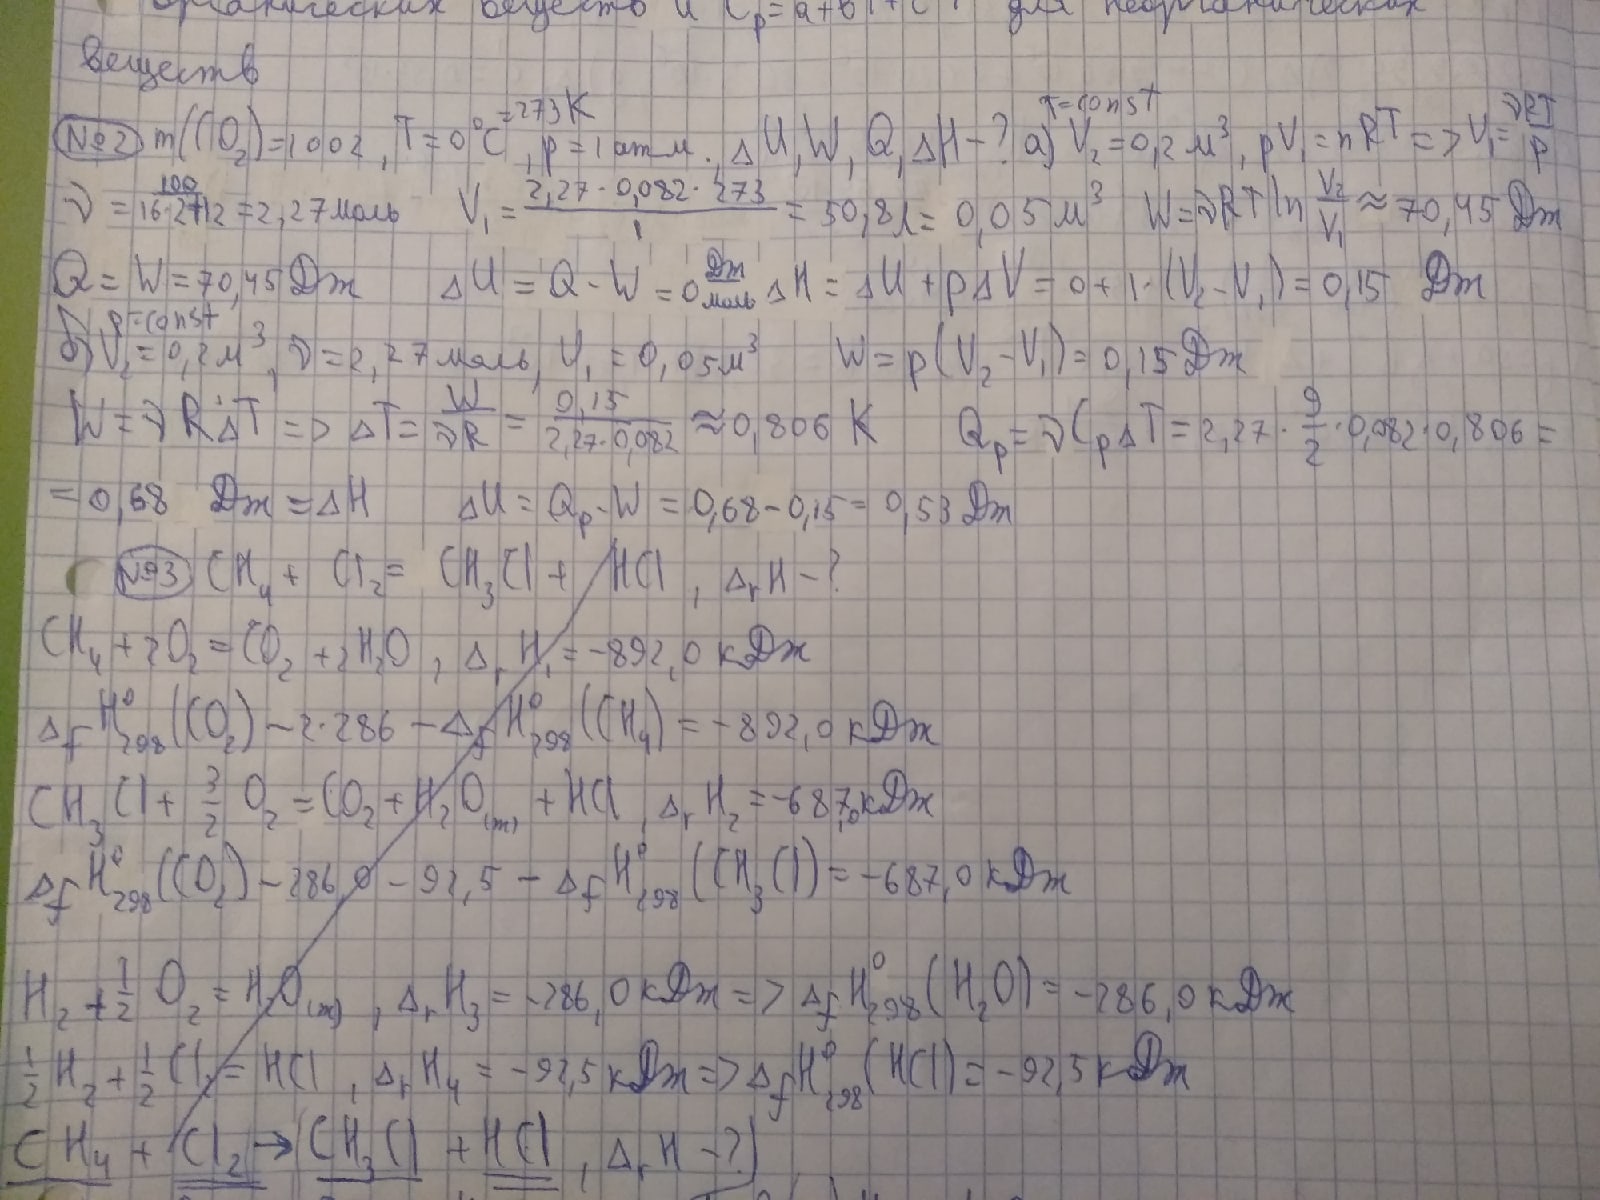 органических веществ и Cp=a+bT+cT для неорганических
веществ
№2 m(CO₂)=100г, T=0°C=273K, p=1атм. ΔU, W, Q, ΔH-? а) T=const V₂=0,2 м³, pV₁=nRT=>V₁=νRT/p
ν=100/(16·2+12)=2,27моль V₁=(2,27·0,082·273)/1=50,8л=0,05м³ W=νRT ln V₂/V₁≈70,45 Дж
Q=W=70,45 Дж ΔU=Q-W=0 Дж/моль ΔH=ΔU+pΔV=0+1·(V₂-V₁)=0,15 Дж
б) p=const V₂=0,2м³, ν=2,27моль, V₁=0,05м³ W=p(V₂-V₁)=0,15Дж
W=νRΔT=>ΔT=W/νR=0,15/(2,27·0,082)≈0,806 K Qp=νCpΔT=2,27·9/2·0,082·0,806=
=0,68 Дж=ΔH ΔU=Qp-W=0,68-0,15=0,53 Дж
№3 CH₄+Cl₂=CH₃Cl+HCl, ΔrH-?
CH₄+2O₂=CO₂+2H₂O, ΔrH₁=-892,0 кДж
ΔfH⁰₂₉₈(CO₂)-2·286-ΔfH⁰₂₉₈(CH₄)=-892,0 кДж
CH₃Cl+3/2 O₂=CO₂+H₂O(ж)+HCl, ΔrH₂=-687,0кДж
ΔfH⁰₂₉₈(CO₂)-286,0-92,5-ΔfH⁰₂₉₈(CH₃Cl)=-687,0 кДж
H₂+1/2 O₂=H₂O(ж), ΔrH₃=-286,0 кДж=>ΔfH⁰₂₉₈(H₂O)=-286,0 кДж
1/2 H₂+1/2 Cl₂=HCl, ΔrH₄=-92,5 кДж=>ΔfH⁰₂₉₈(HCl)=-92,5 кДж
CH₄+Cl₂→CH₃Cl+HCl, ΔrH-?